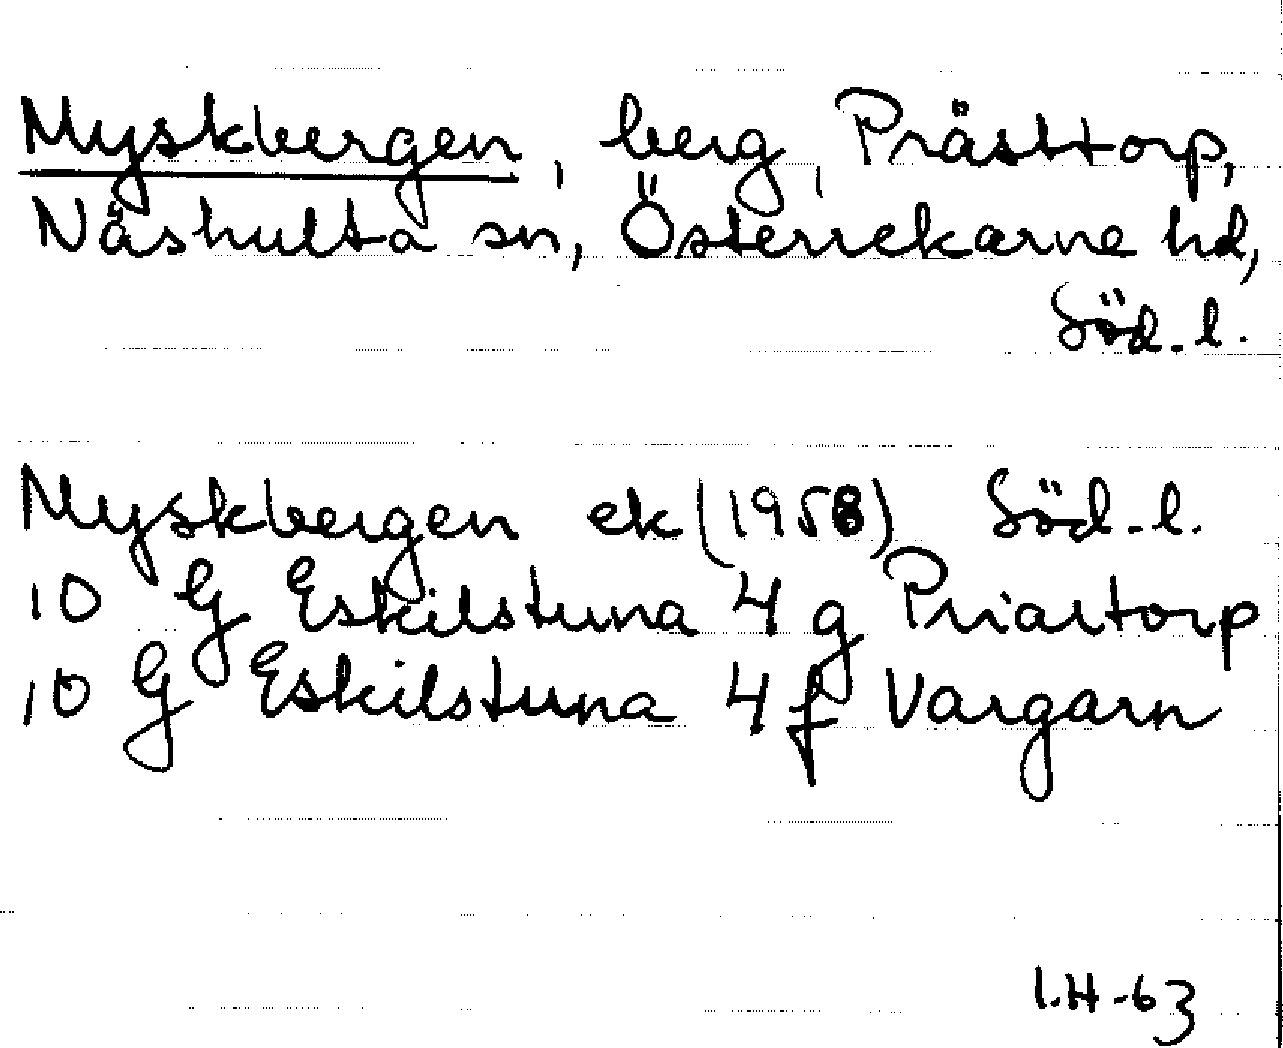 Myskbergen, berg, Prästtorp,
Näshulta sn, Österrekarne hd,
Söd.l.
Myskbergen ek (1958) Söd.l.
10 G Eskilstuna 4 g Priartorp
10 G Eskilstuna 4 f Vargarn
I.H-63